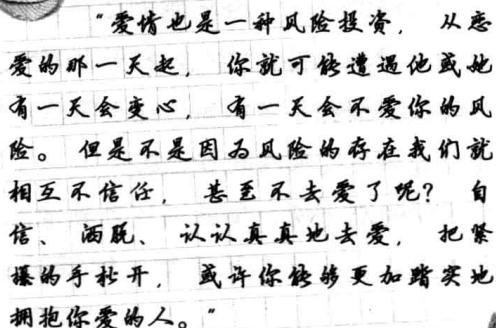 “爱情也是一种风险投资, 从恋
爱的那一天起, 你就可能遭遇他或她
有一天会变心, 有一天会不爱你的风
险。 但是不是因为风险的存在我们就
相互不信任, 甚至不去爱了呢? 自
信、 洒脱、 认认真真地去爱, 把紧
攥的手松开, 或许你能够更加踏实地
拥抱你爱的人。”